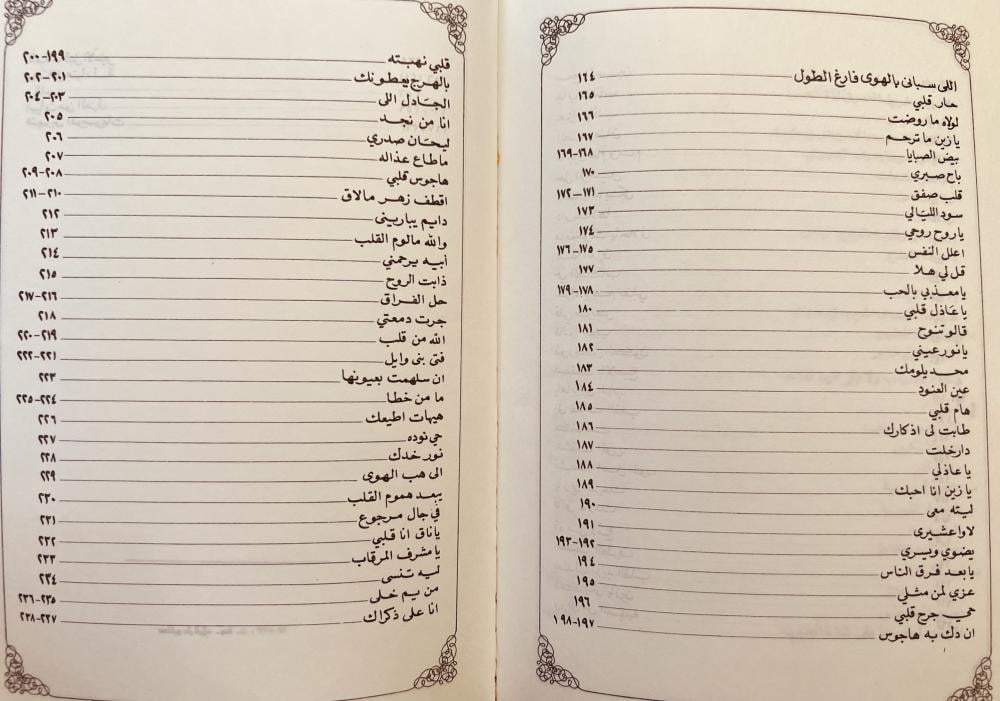 اللى سبانى بالهوى فارغ الطول ١٦٤
حار قلبي ١٦٥
لولاه ما روضت ١٦٦
يا زين ما ترحم ١٦٧
بيض الصبايا ١٦٨-١٦٩
باح صبري ١٧٠
قلب صفق ١٧١-١٧٢
سود الليالي ١٧٣
يا روح روحي ١٧٤
اعلل النفس ١٧٥-١٧٦
قل لي هلا ١٧٧
يا معذبي بالحب ١٧٨-١٧٩
يا عاذل قلبي ١٨٠
قالو تنوح ١٨١
يا نور عيني ١٨٢
محد يلومك ١٨٣
عين العنود ١٨٤
هام قلبي ١٨٥
طابت لى اذكارك ١٨٦
دار خلت ١٨٧
يا عاذلي ١٨٨
يا زين انا احبك ١٨٩
ليته معى ١٩٠
لاوا عشيرى ١٩١
يضوي ويسري ١٩٢-١٩٣
يا بعد فرق الناس ١٩٤
عزي لمن مثلي ١٩٥
حمي جرح قلبي ١٩٦
ان دك به هاجوس ١٩٧-١٩٨
قلبي نهبته ١٩٩-٢٠٠
بالهرج يعطونك ٢٠١-٢٠٢
الجادل اللى ٢٠٣-٢٠٤
انا من نجد ٢٠٥
ليحان صدري ٢٠٦
ما طاع عذاله ٢٠٧
هاجوس قلبي ٢٠٨-٢٠٩
اقطف زهر مالاق ٢١٠-٢١١
دايم يبارينى ٢١٢
والله مالوم القلب ٢١٣
أبيه يرحمني ٢١٤
ذابت الروح ٢١٥
حل الفراق ٢١٦-٢١٧
جرت دمعتي ٢١٨
الله من قلب ٢١٩-٢٢٠
فتى بنى وايل ٢٢١-٢٢٢
ان سلهمت بعيونها ٢٢٣
ما من خطا ٢٢٤-٢٢٥
هيهات اطيعك ٢٢٦
حي نوده ٢٢٧
نور خدك ٢٢٨
الى هب الهوى ٢٢٩
يبعد هموم القلب ٢٣٠
في جال مرجوع ٢٣١
ياناق انا قلبي ٢٣٢
يا مشرف المرقاب ٢٣٣
ليه تنسى ٢٣٤
من يم خلى ٢٣٥-٢٣٦
انا على ذكراك ٢٣٧-٢٣٨